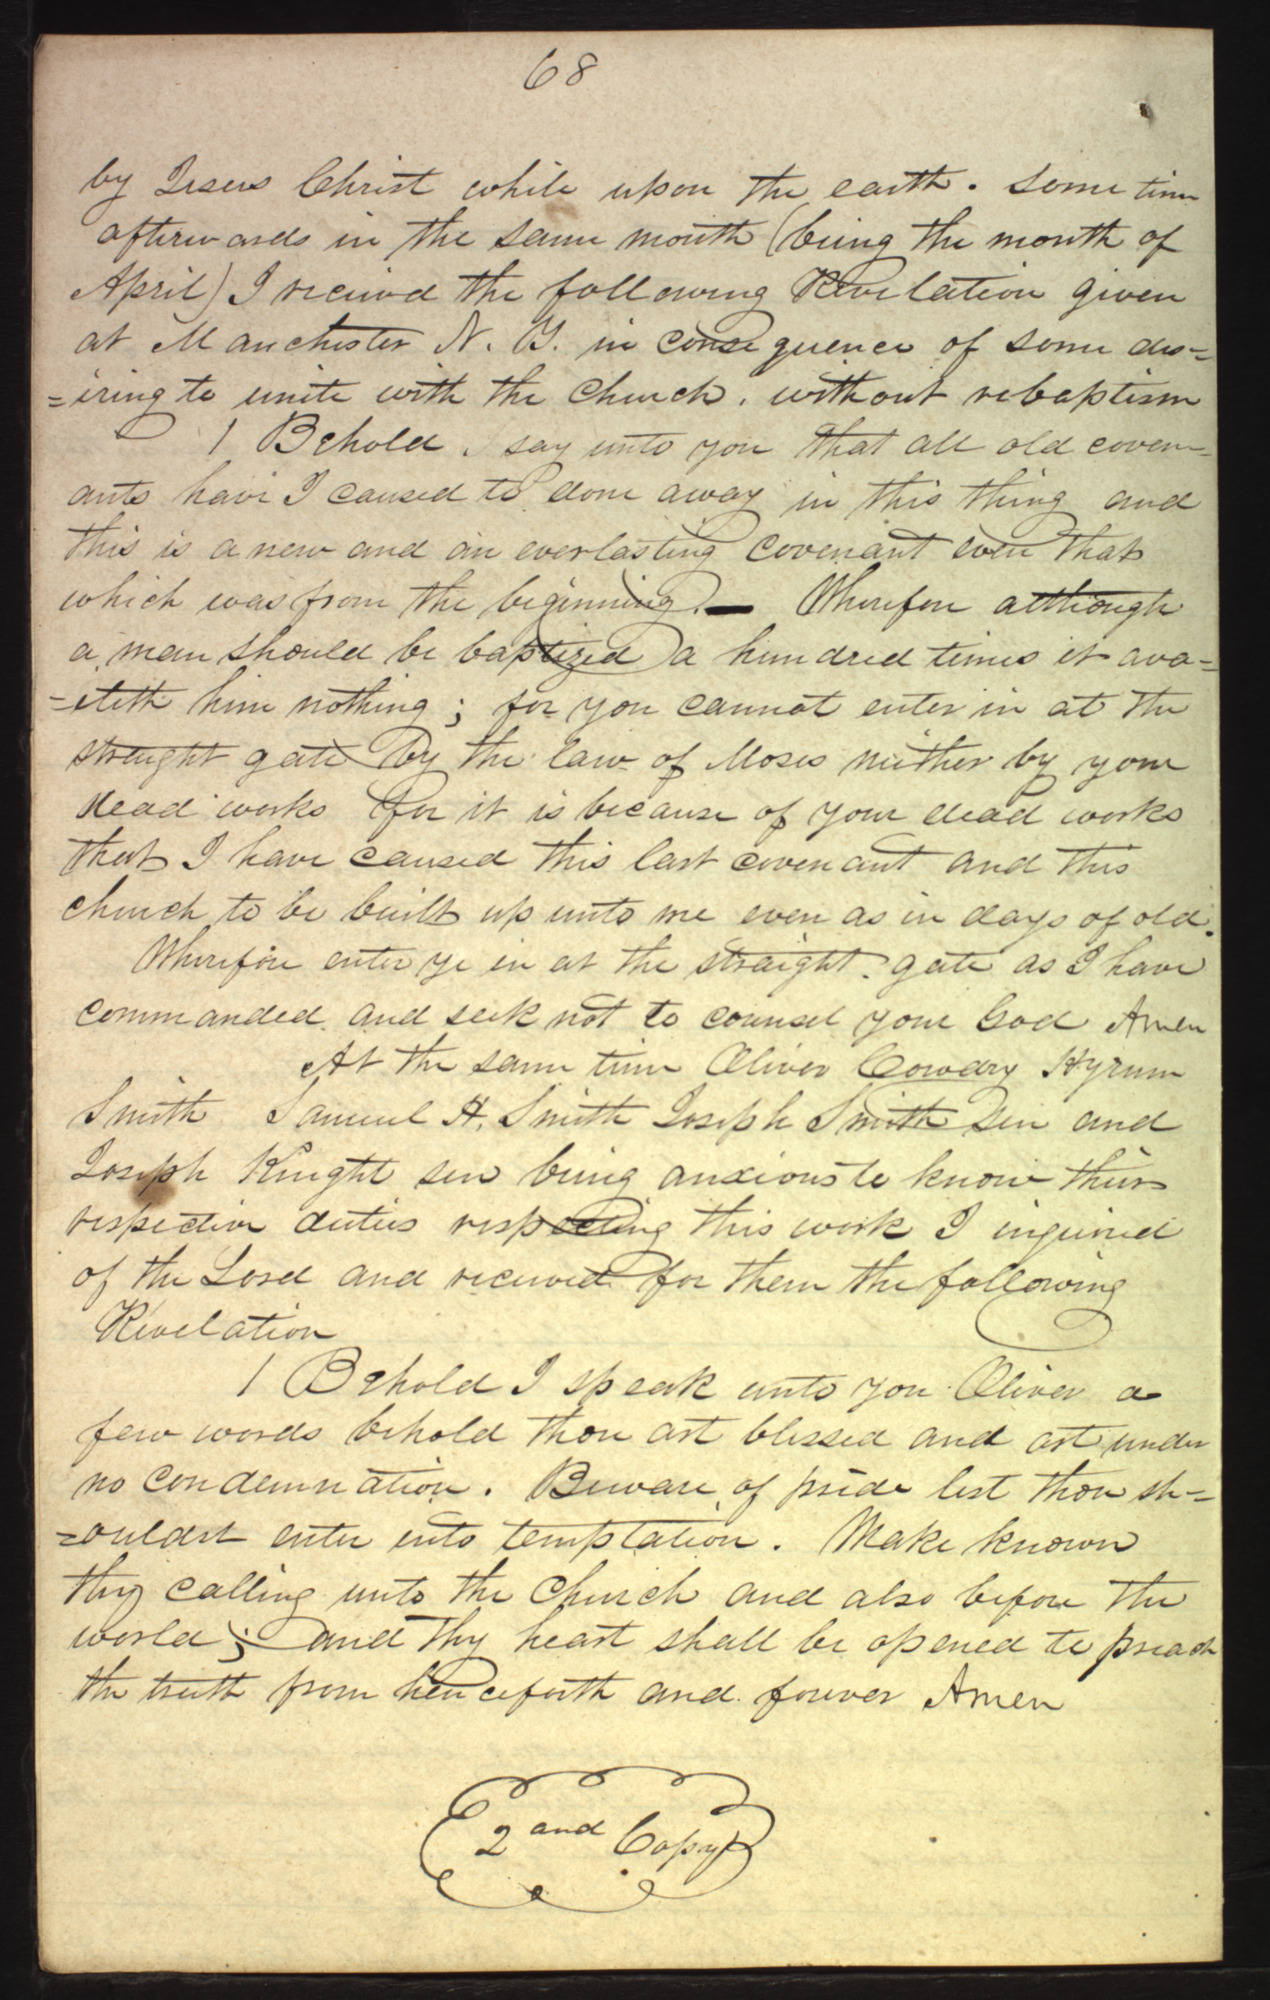 68
by Jesus Christ while upon the earth. Some time
afterwards in the same month (being the month of
April) I received the following Revelation given
at Manchester N. Y. in consequence of some des=
=iring to unite with the Church. without rebaptism
1 Behold I say unto you that all old coven=
ants have I caused to done away in this thing and
this is a new and an everlasting covenant even that
which was from the beginning. — Wherefore although
a man should be baptized a hundred times it ava=
=ileth him nothing; for you cannot enter in at the
straight gate by the law of Moses neither by your
dead works for it is because of your dead works
that I have caused this last covenant and this
church to be built up unto me even as in days of old.
Wherefore enter ye in at the straight gate as I have
commanded. and seek not to counsel your God Amen
At the same time Oliver Cowdry Hyrum
Smith Samuel H. Smith Joseph Smith sen and
Joseph Knight sen being anxious to know their
respective duties respecting this work I inquired
of the Lord and received for them the following
Revelation
1 Behold I speak unto you Oliver a
few words behold thou art blessed and art under
no condemnation. Beware of pride lest thou sh=
=ouldst enter into temptation. Make known
thy calling unto the Church and also before the
world; and thy heart shall be opened to preach
the truth from henceforth and forever Amen
2and Copy